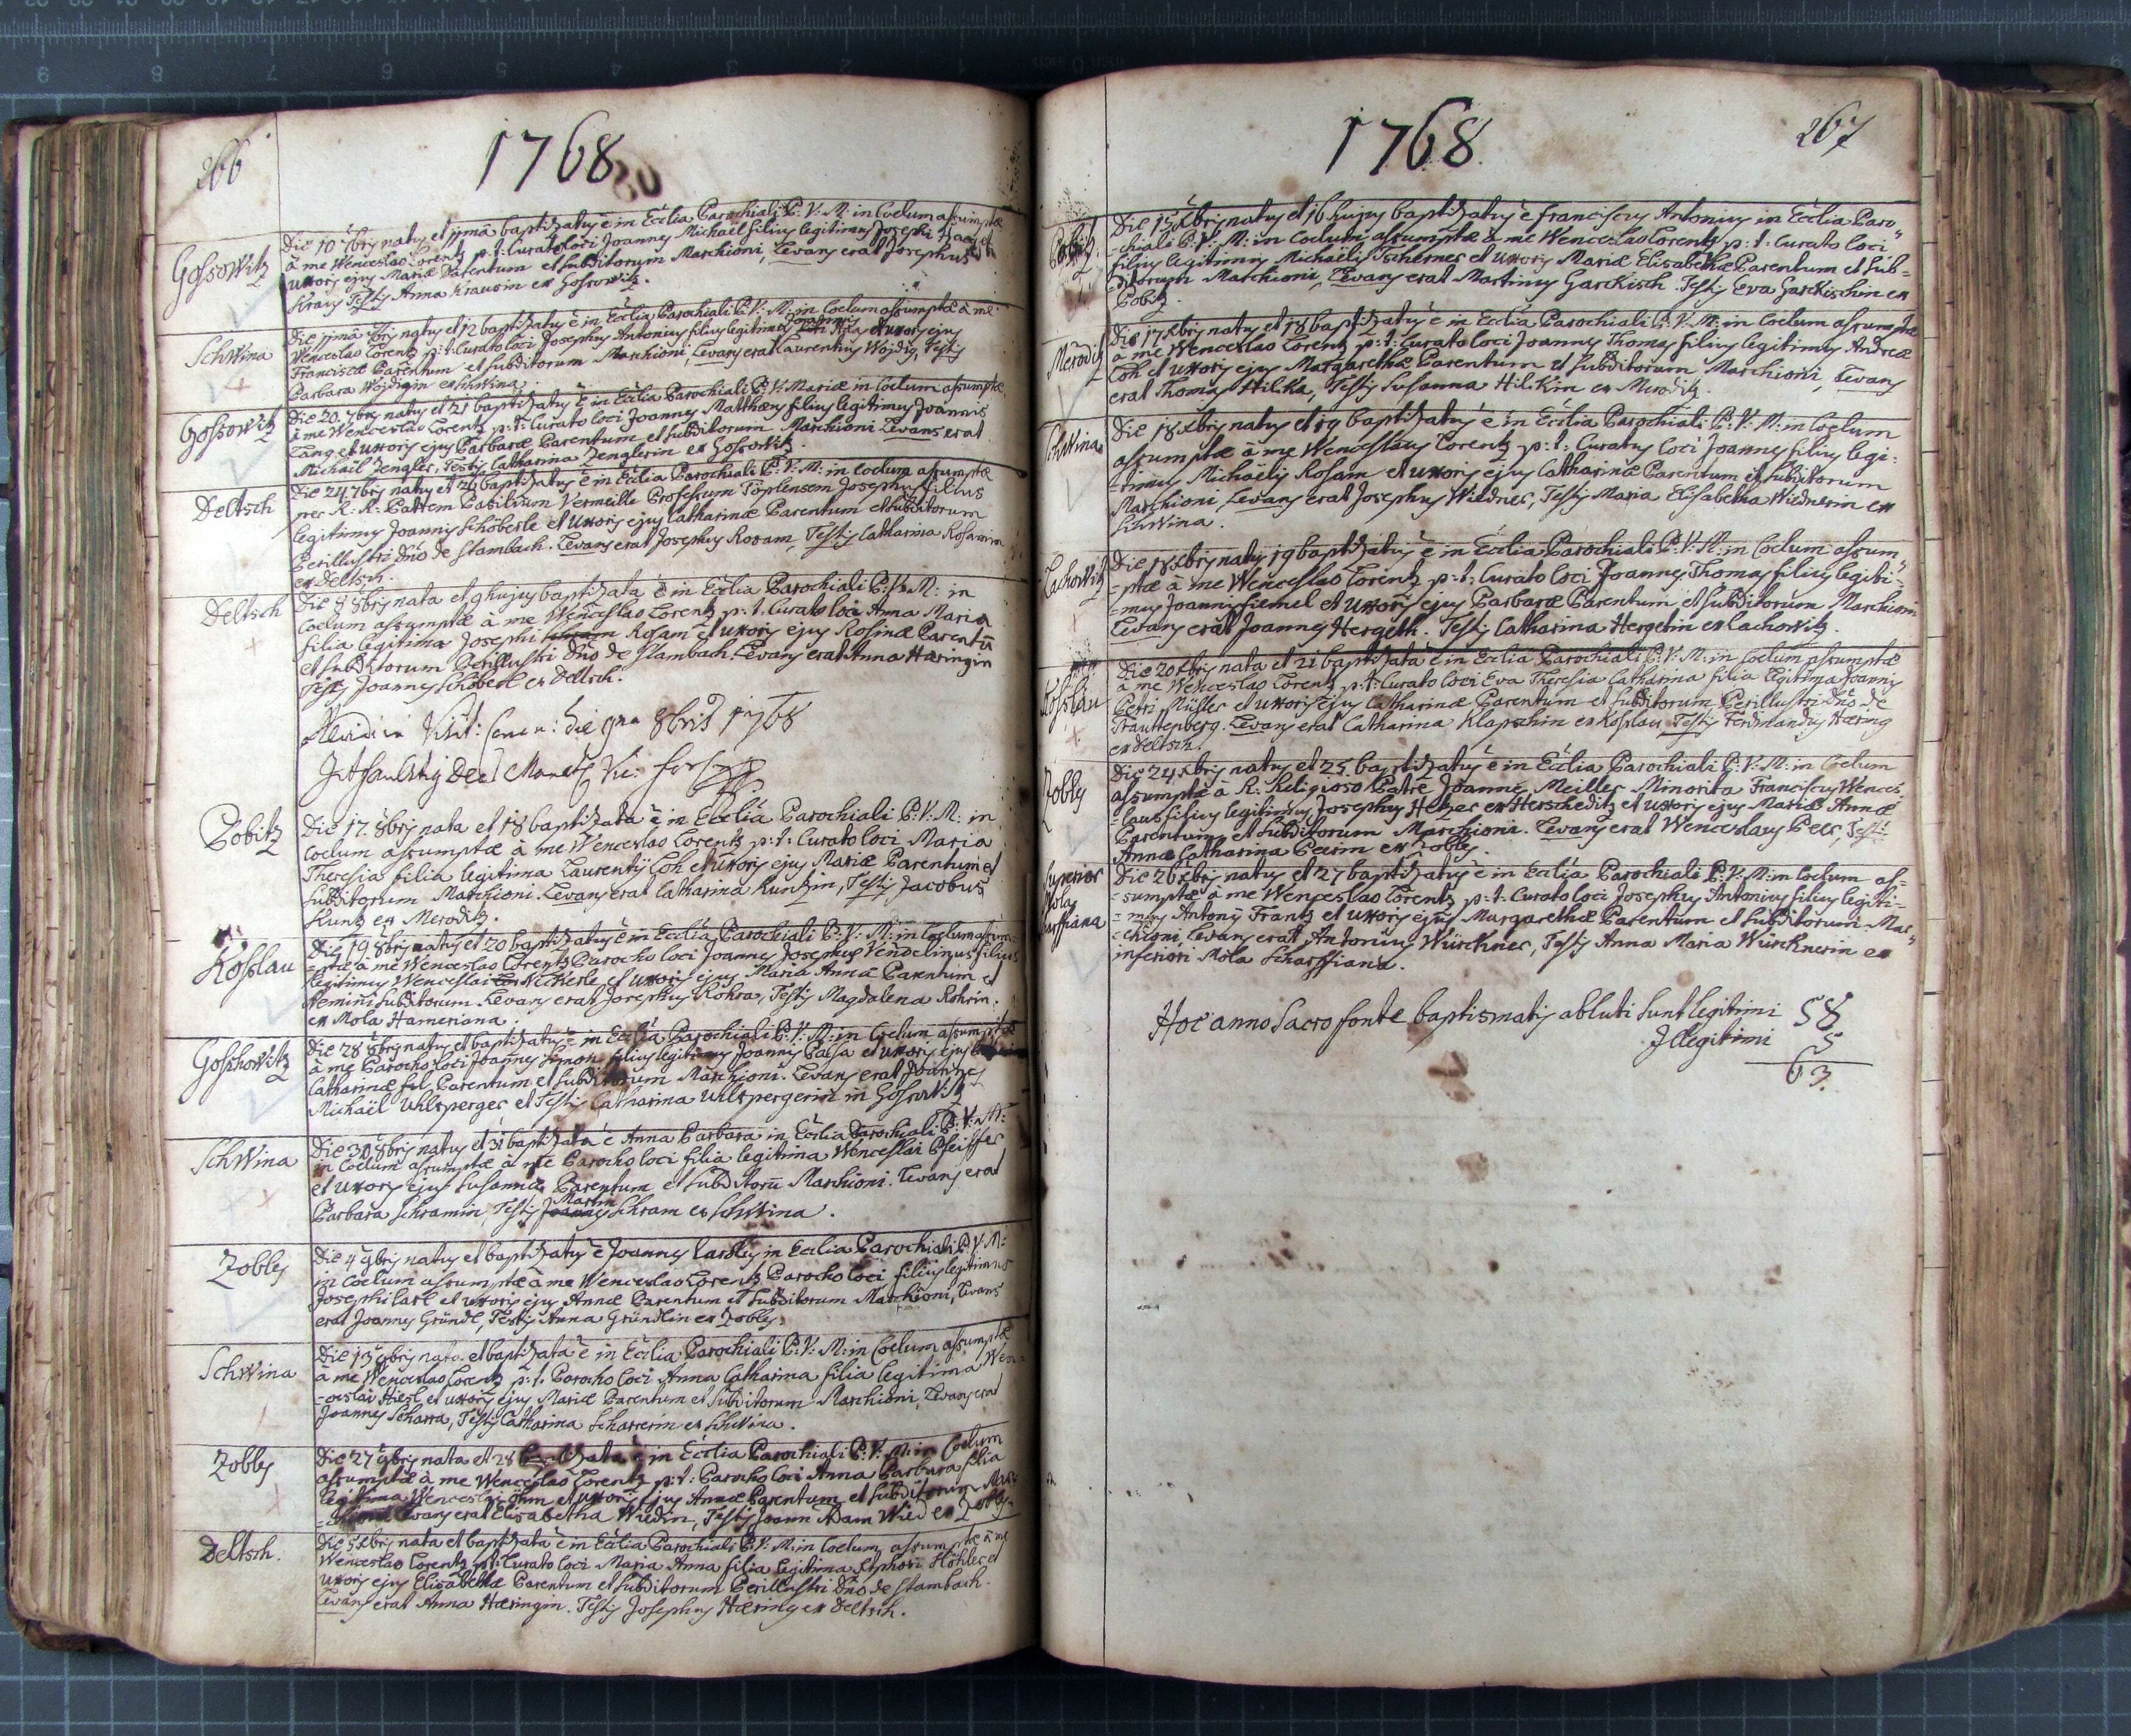 266
1768
Gossowitz
Die 10 7bris natus et 11ma baptizatus ẽ in Ecclia Parochiali B: V: M: in Coelum assumptæ
à me Wenceslao Lorentz p: t: Curato loci Joannes Michaël filius legitimus Josephi
uxoris ejus Mariæ Parentum et subditorum Marchioni, Levans erat Josephus
Kraus Testis Anna Krausin ex Gossowitz.
Schwina
Die 11ma 7bris natus et 12 baptizatus ẽ in Ecclia Parochiali B: V: M: in Coelum assumptæ à me
Wenceslao Lorentz p: t: Curato loci Josephus Antonius filius legitimus et uxoris ejus
Franciscæ Parentum et subditorum Marchioni, Levans erat Laurentius Wojdig, Testis
Barbara Wojdigin ex Schwina.
Gossowitz
Die 20. 7bris natus et 21 baptizatus ẽ in Ecclia Parochiali B: V: Mariæ in Coelum assumptæ
à me Wenceslao Lorentz p: t: Curato loci Joannes Matthæus filius legitimus Joannis
Lang et uxoris ejus Barbaræ Parentum et subditorum Marchioni Levans erat
Michaël Zengler, Testis Catharina Zenglerin ex Gossowitz.
Deltsch
Die 24 7bris natus et 26 baptizatus ẽ in Ecclia Parochiali B: V: M: in Coelum assumptæ
per R: R: Patrem Basilium Vermeille Professum Töplensem Josephus filius
legitimus Joannis Schöberle et Uxoris ejus Catharinæ Parentum et subditorum
Perillustri Dño de Stambach. Levans erat Josephus Rosam, Testis Catharina Rosamin
ex Deltsch.
Deltsch
Die 8 8bris nata et 9 hujus baptizata ẽ in Ecclia Parochiali B: V: M: in
Coelum assumptæ à me Wenceslao Lorentz p: t: Curato loci Anna Maria
filia legitima Josephi Rosam et uxoris ejus Rosinæ Parentũ
et subditorum Perillustri Dño de Stambach. Levans erat Anna Hæringin
Testis Joannes Schöberl ex Deltsch.
die 9na 8bris 1768
Pobitz
Die 17. 8bris nata et 18 baptizata ẽ in Ecclia Parochiali B: V: M: in
Coelum assumptæ à me Wenceslao Lorentz p: t: Curato loci Maria
Theresia filia legitima Laurentÿ Loh et uxoris ejus Mariæ Parentum et
subditorum Marchioni. Levans erat Catharina Kuntzin, Testis Jacobus
Kuntz ex Meroditz.
Kosslau
Die 19 8bris natus et 20 baptizatus ẽ in Ecclia Parochiali B: V: M: in Coelum assum=
=ptæ à me Wenceslao Lorentz Parocho loci Joannes Josephus Vendelinus filius
legitimus Wenceslai et uxoris ejus Maria Anna Parentum et
Nemini subditorum. Levans erat Josephus Rohra, Testis Magdalena Rohrin.
ex Mola Hameriana.
Goschowitz
Die 28 8bris natus et baptizatus ẽ in Ecclia Parochiali B: V: M: in Coelum assumptæ
à me Parocho loci Joannes Simon filius legitimus Joannis Palsa et uxoris ejus
Catharinæ Parentum et subditorum Marchioni. Levans erat Joannes
Michaël Uhlsperger et Testis Catharina Uhlspergerin in Gossowitz
Schwina
Die 30 8bris natus et 31 baptizata ẽ Anna Barbara in Ecclia Parochiali B: V: M:
in Coelum assumptæ à me Parocho loci filia legitima Wenceslai Pfeiffer
et uxoris ejus Susannæ Parentum et subditorũ Marchioni. Levans erat
Barbara Schramin, Testis Martin Schram ex Schwina.
Zobles
Die 4 9bris natus et baptizatus ẽ Joannes Carolus in Ecclia Parochiali B: V: M:
in Coelum assumptæ à me Wenceslao Lorentz Parocho loci filius legitimus
Josephi Carl et uxoris ejus Annæ Parentum et subditorum Marchioni, Levans
erat Joannes Gründl, Testis Anna Gründlin ex Zobles.
Schwina
Die 13 9bris nata et baptizata ẽ in Ecclia Parochiali B: V: M: in Coelum assumptæ
à me Wenceslao Lorentz p: t: Parocho loci Anna Catharina filia legitima Wen=
=ceslai Hiesl et uxoris ejus Mariæ Parentum et subditorum Marchioni, Levans erat
Joannes Scharra, Testis Catharina Scharrerin ex Schwina.
Zobles
Die 27 9bris nata et 28 baptizata ẽ in Ecclia Parochiali B: V: M: in Coelum
assumptæ à me Wenceslao Lorentz p: t: Parocho loci Anna Barbara filia
legitima Wenceslai Böhm et uxoris ejus Annæ Parentum et subditorum Mar=
=chioni Levans erat Elisabetha Wiedin, Testis Joann Adam Wied ex Zobles.
Deltsch.
Die 5 Xbris nata et baptizata ẽ in Ecclia Parochiali B: V: M: in Coelum assumptæ à me
Wenceslao Lorentz p: t: Curato loci Maria Anna filia legitima Höhler et
uxoris ejus Elisabethæ Parentum et subditorum Perillustri Dño de Stambach.
Levans erat Anna Hæringin. Testis Josephus Hæring ex Deltsch.
1768.
267
Pobitz.
Die 15 Xbris natus et 16 hujus baptizatus ẽ Franciscus Antonius in Ecclia Paro=
=chiali B: V: M: in Coelum assumptæ à me Wenceslao Lorentz p: t: Curato loci
filius legitimus Michaëlis Tscherner et Uxoris Mariæ Elisabethæ Parentum et sub=
=ditorum Marchioni, Levans erat Martinus Garckisch. Testis Eva Garckischin ex
Pobitz.
Meroditz
Die 17 Xbris natus et 18 baptizatus ẽ in Ecclia Parochiali B: V: M: in Coelum assumptæ
à me Wenceslao Lorentz p: t: Curato loci Joannes Thomas filius legitimus Andreæ
Loh et uxoris ejus Margarethæ Parentum et subditorum Marchioni, Levans
erat Thomas Hilka, Testis Susanna Hilkin ex Meroditz.
Schwina
Die 18 Xbris natus et 19 baptizatus ẽ in Ecclia Parochiali B: V: M: in Coelum
assumptæ à me Wenceslaus Lorentz p: t: Curatus loci Joannes filius legi=
=timus Michaëlis Rosam et uxoris ejus Catharinæ Parentum et subditorum
Marchioni, Levans erat Josephus Wiedner, Testis Maria Elisabetha Wiednerin ex
Schwina.
Lachowitz
Die 18 Xbris natus 19 baptizatus ẽ in Ecclia Parochiali B: V: M: in Coelum assum=
=ptæ à me Wenceslao Lorentz p: t: Curato loci Joannes Thomas filius legiti=
=mus Joannis Siemel et Uxoris ejus Barbaræ Parentum et subditorum Marchioni
Levans erat Joannes Hergeth. Testis Catharina Hergetin ex Lachowitz.
Kosslau
Die 20 Xbris nata et 21 baptizata ẽ in Ecclia Parochiali B: V: M: in Coelum assumptæ
à me Wenceslao Lorentz p: t: Curato loci Eva Theresia Catharina filia legitima Joannis
Petri Müller et uxoris ejus Catharinæ Parentum et subditorum Perillustri Dño de
Trauttenberg. Levans erat Catharina Klapschin ex Kosslau Testis Ferdinandus Hæring
ex Deltsch.
Zobles
Die 24 Xbris natus et 25. baptizatus ẽ in Ecclia Parochiali B: V: M: in Coelum
assumptæ à R: Religioso Patre Joanne Meiller Minorita Franciscus Wences=
=laus filius legitimus, Josephus Heger ex Herscheditz et uxoris ejus Mariæ Annæ
Parentum et subditorum Marchioni. Levans erat Wenceslaus Peer, Test:
Anna Catharina Peerin ex Zobles.
Superior
Mola
Scharffiana
Die 26 Xbris natus et 27 baptizatus ẽ in Ecclia Parochiali B: V: M: in Coelum as=
=sumptæ à me Wenceslao Lorentz p: t: Curato loci Josephus Antonius filius legiti=
=mus Antonÿ Frantz et uxoris ejus Margarethæ Parentum et subditorum Mar=
=chioni, Levans erat Antonius Würckner, Testis Anna Maria Würcknerin ex
inferiori Mola Scharffiana.
Hoc anno Sacro fonte baptismatis abluti sunt legitimi 58
Illegitimi 5
63.